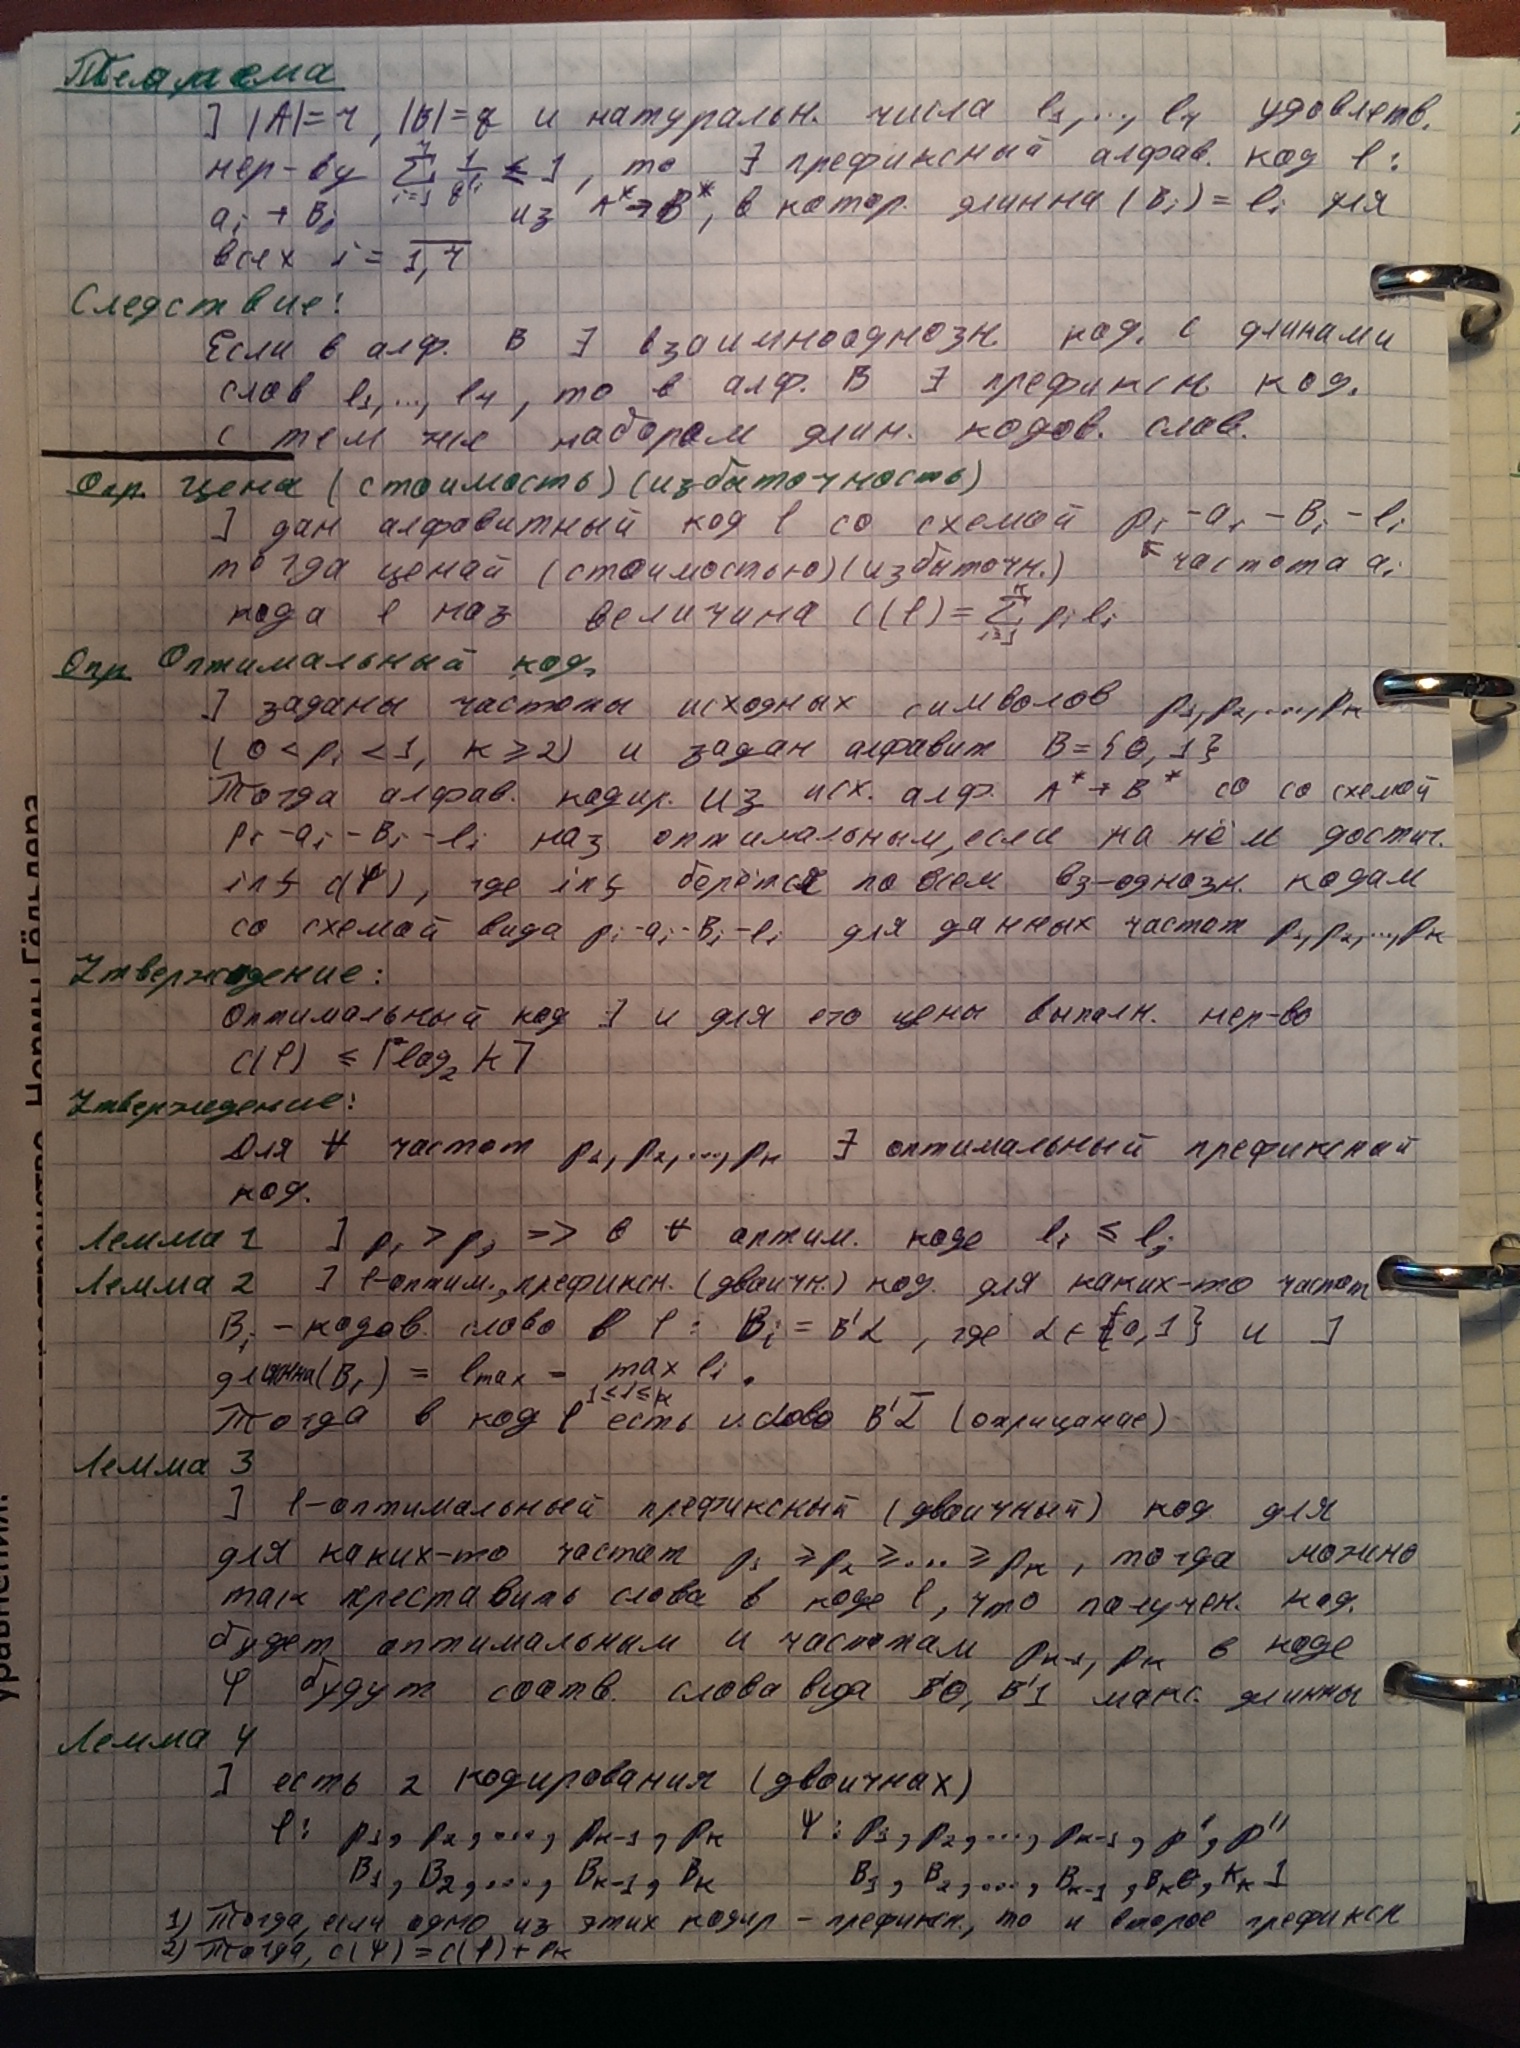 Теорема
] |A|=r, |B|=q и натуральн. числа l₁,..., lᵣ удовлетв.
нер-ву ∑ᵢ₌₁ʳ 1/q^lᵢ ≤ 1, то ∃ префиксный алфав. код φ:
aᵢ → Bᵢ из A*→B*, в котор. длинна (Bᵢ) = lᵢ для
всех i = 1,r
Следствие:
Если в алф. B ∃ взаимнооднозн. код. с длинами
слов l₁,..., lᵣ, то в алф. B ∃ префиксн. код.
с тем же набором длин. кодов. слов.
Опр. Цена (стоимость) (избыточность)
] дан алфавитный код φ со схемой pᵢ - aᵢ - Bᵢ - lᵢ
тогда ценой (стоимостью) (избыточн.) ↖ частота aᵢ
кода φ наз величина C(φ) = ∑ᵢ₌₁ᵏ pᵢ lᵢ
Опр Оптимальный код.
] заданы частоты исходных символов p₁, p₂, ..., pₖ
(0 < pᵢ < 1, k ≥ 2) и задан алфавит B = {0, 1}
Тогда алфав. кодир. из исх. алф. A* → B* со со схемой
pᵢ - aᵢ - Bᵢ - lᵢ наз оптимальным, если на нём достиг.
inf C(Ψ), где inf берётся по всем вз-однозн. кодам
со схемой вида pᵢ - aᵢ - Bᵢ - lᵢ для данных частот p₁, p₂, ..., pₖ
Утверждение:
Оптимальный код ∃ и для его цены выполн. нер-во
C(φ) ≤ ⌈log₂ k⌉
Утверждение:
Для ∀ частот p₁, p₂, ..., pₖ ∃ оптимальный префиксный
код.
Лемма 1 ] pᵢ > pⱼ => в ∀ оптим. коде lᵢ ≤ lⱼ
Лемма 2 ] φ-оптим., префиксн. (двоичн.) код. для каких-то частот
Bᵢ - кодов. слово в φ: Bᵢ = B'α, где α ∈ {0, 1} и ]
длинна(Bᵢ) = lmax = max lᵢ.
1≤i≤k
Тогда в код φ есть и слово B'α̅ (отрицание)
Лемма 3
] φ-оптимальный префиксный (двоичный) код для
для каких-то частот p₁ ≥ p₂ ≥ .... ≥ pₖ, тогда можно
так преставить слова в коде φ, что получен. код.
будет оптимальным и частотам pₖ₋₁, pₖ в коде
Ψ будут соотв. слова вида B'0, B'1 макс. длинны
Лемма 4
] есть 2 кодирования (двоичнах)
φ: p₁, p₂, ..., pₖ₋₁, pₖ Ψ: p₁, p₂, ..., pₖ₋₁, p', p''
B₁, B₂, ..., Bₖ₋₁, Bₖ B₁, B₂, ..., Bₖ₋₁, Bₖ0, Kₖ1
1) Тогда, если одно из этих кодир - префиксн., то и второе префиксн
2) Тогда, C(Ψ) = C(φ) + pₖ
Нормы Гёльдера
пространство
уравнения.